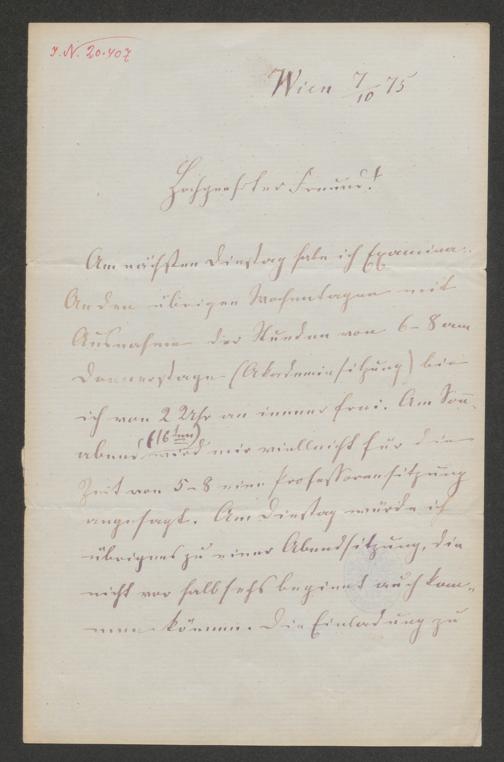 I. N. 20.407
Wien 7/10 75
Hochgeehrter Freund!
Am nächsten Dienstag habe ich Examina.
An den übrigen Wochentagen mit
Ausnahme der Stunden von 6-8 am
Donnerstage (Akademiesitzung) bin
ich von 2 Uhr an immer frei. Am Sonn-
abend (16ten) wird mir vielleicht für die
Zeit von 5-8 eine Professorensitzung
angesagt. Am Dienstag würde ich
übrigens zu einer Abendsitzung, die
nicht vor halb sechs beginnt auch kom-
men können. Die Einladung zu